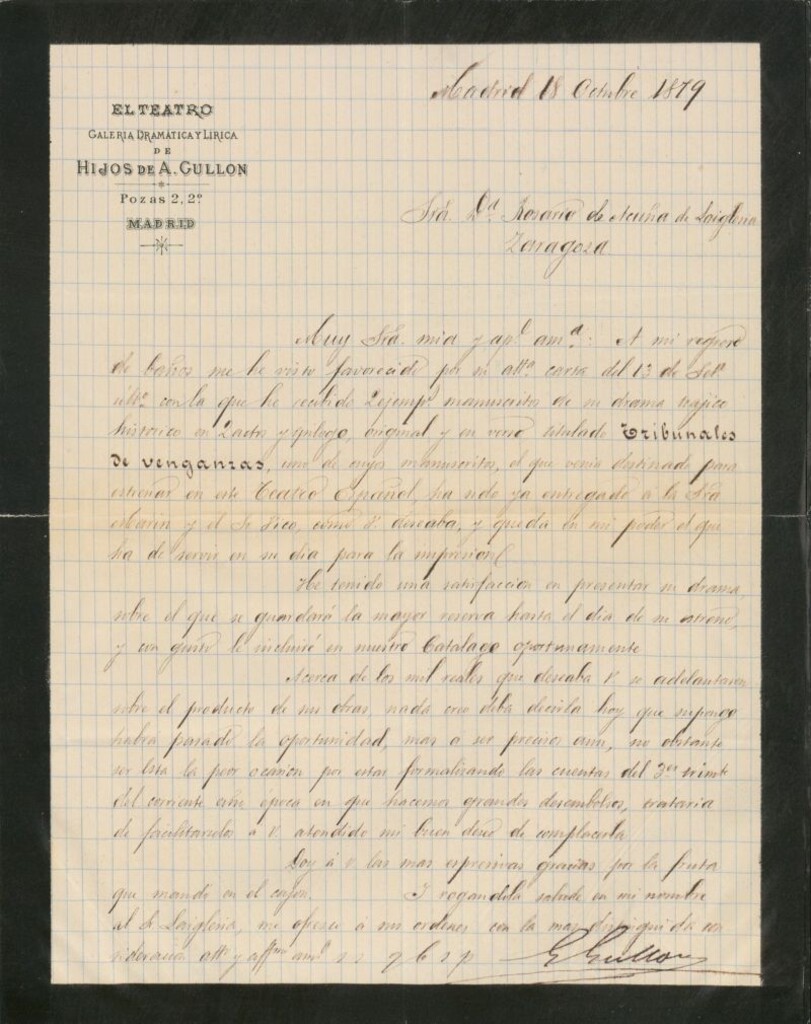 Madrid 18 Octubre 1879
EL TEATRO
GALERIA DRAMÁTICA Y LÍRICA
DE
HIJOS DE A. GULLON
Pozas 2, 2º
MADRID
Srá. Dª. Rosario de Acuña de Laiglesia
Zaragoza
Muy Srá. mia y apl. amª.: A mi regreso
de baños me he visto favorecido por su attª. carta del 13 de Setº
ultº. con la que he recibido 2 ejempˢ manuscritos de su drama trájico
historico en 2 actos y epílogo, original y en verso titulado Tribunales
de venganzas, uno de cuyos manuscritos, el que venia destinado para
estrenar en este Teatro Español, ha sido ya entregado á la Srá
Marin y el Sr Vico, como V. deseaba, y queda en mi poder el que
ha de servir en su dia para la impresion.
He tenido una satisfaccion en presentar su drama,
sobre el que se guardará la mayor reserva hasta el dia de su estreno,
y con gusto le incluiré en nuestro Catalago oportunamente
Acerca de los mil reales que deseaba V. se adelantaran
sobre el producto de sus obras, nada creo deba decirla hoy que supongo
habrá pasado la oportunidad, mas a ser preciso aun, no obstante
ser esta la peor ocasion por estar formalizando las cuentas del 3er trimte
del corriente año, época en que hacemos grandes desembolsos, trataria
de facilitarselos á V. atendido mi buen deseo de complacerla
Doy á V. las mas espresivas gracias por la fruta
que mandó en el cajon. Y rogandola salude en mi nombre
al Sr Laiglesia, me ofresco á sus ordenes con la mas distinguida con
sideracion attº y affmo amº s s q b s p E Gullon